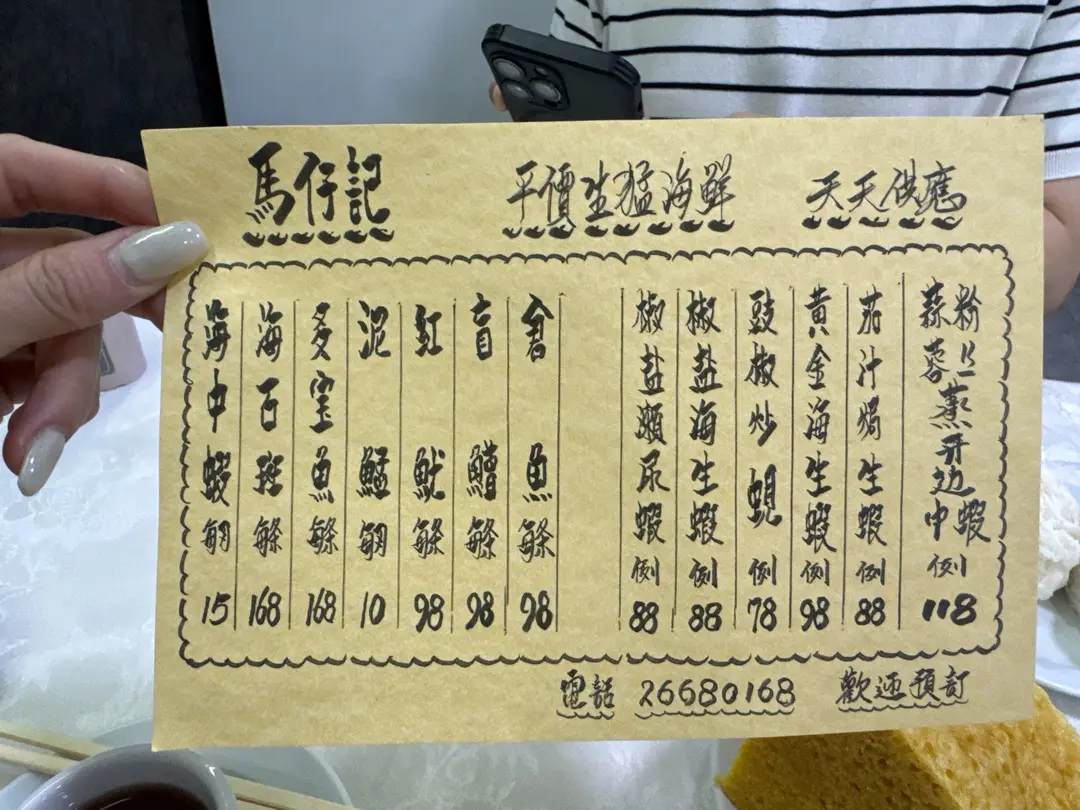 馬仔記 平價生猛海鮮 天天供應
粉丝蒜蓉蒸开边中蝦 例 118
茄汁焗生蝦 例 88
黄金海生蝦 例 98
豉椒炒蜆 例 78
椒盐海生蝦 例 88
椒盐瀨尿蝦 例 88
倉魚 每條 98
盲鰽 每條 98
紅魷 每條 98
泥鯭 每 10
多宝魚 每條 168
海百斑 每條 168
海中蝦 每 15
電話 26680168 歡迎預訂